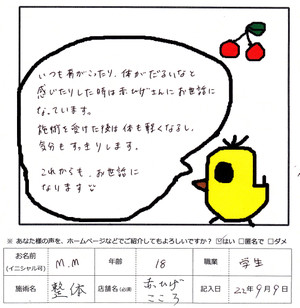 いつも肩がこったり、体がだるいなと
感じたりした時は赤ひげさんにお世話に
なっています。
施術を受けた後は体も軽くなるし、
気分もすっきりします。
これからも、お世話に
なります
※ あなた様の声を、ホームページなどでご紹介してもよろしいですか？ ☑はい □匿名で □ダメ
お名前 (イニシャル可) M.M 年齢 18 職業 学生
施術名 整体 店舗名(必須) 赤ひげ こころ 記入日 22年9月9日